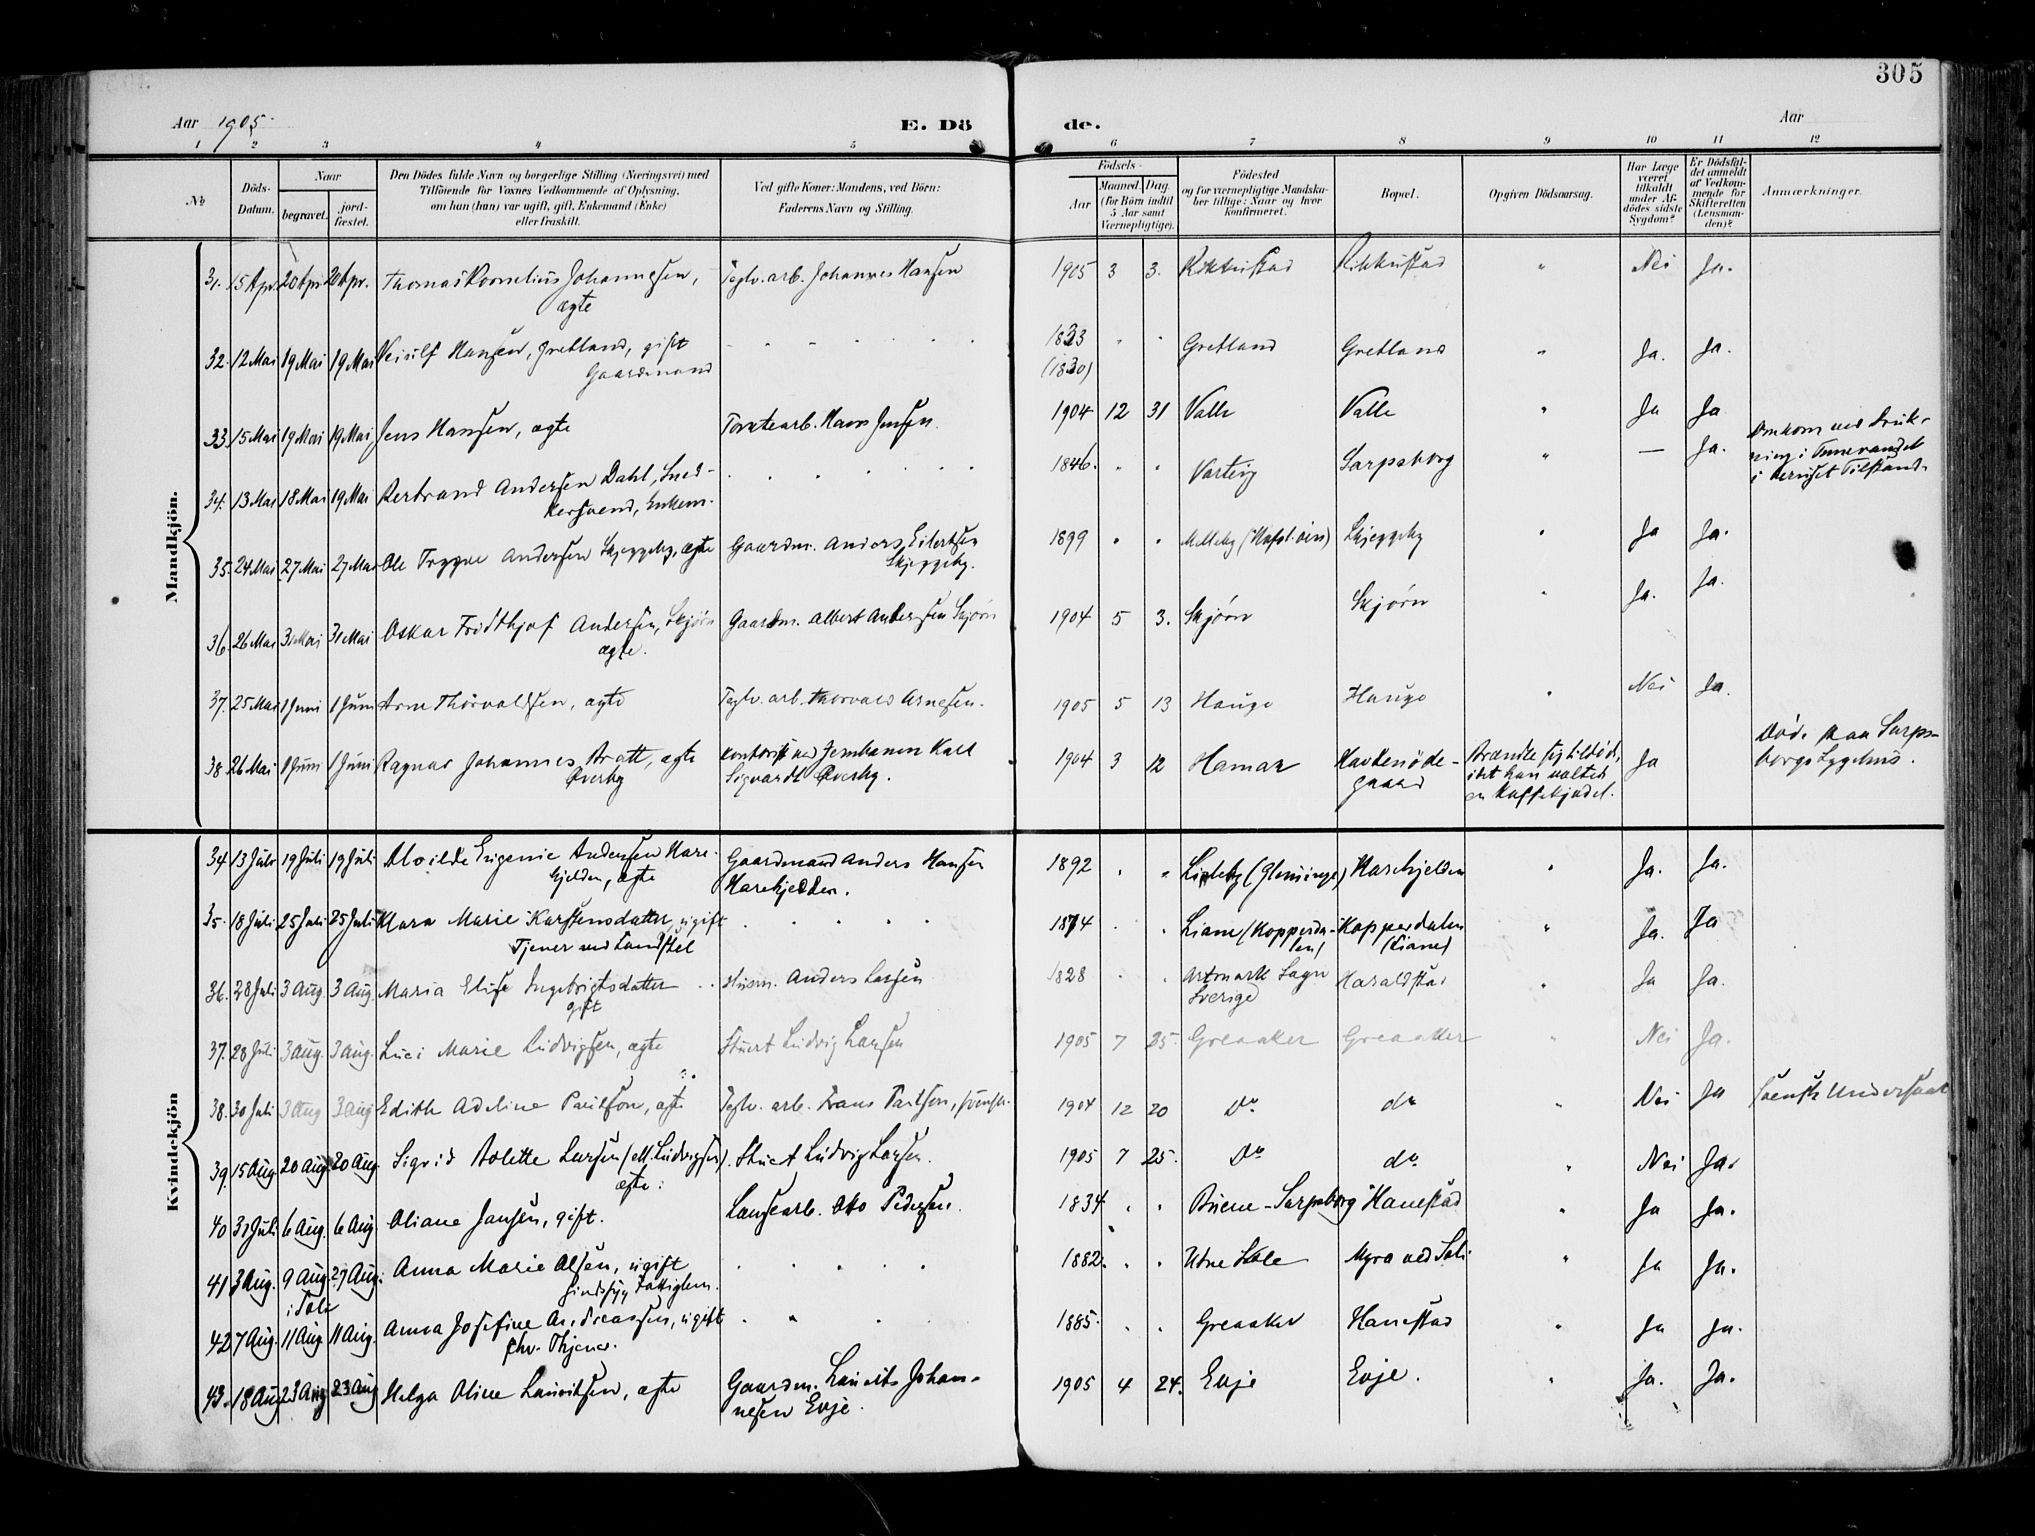 305
Aar 1905.
E. Dö
de.
Aar
1 2 3 4 5 6 7 8 9 10 11 12
No
Döds-
Datum.
Naar
begravet.
jord-
fæstet.
Den Dödes fulde Navn og borgerlige Stilling (Næringsvei) med
Tilföiende for Voxnes Vedkommende af Oplysning,
om han (hun) var ugift, gift, Enkemand (Enke)
eller fraskilt.
Ved gifte Koner: Mandens, ved Börn:
Faderens Navn og Stilling.
Födsels-
Aar
Maaned. Dag.
(for Börn indtil
5 Aar samt
Værnepligtige).
Födested
og for værnepligtige Mandsku-
ber tillige: Naar og hvor
konfirmeret.
Bopæl.
Opgiven Dödsaarsag.
Har Læge
været
tilkaldt
under Af-
dödes sidste
Sygdom?
Er Dödsfal-
det anmeldt
af Vedkom-
mende for
Skifteretten
(Lensman-
den)?
Anmærkninger.
Mandkjön.
31. 15 Apr. 20 Apr. 20 Apr. Thomas Kornelius Johannesen, Teglv. arb. Johannes Hansen 1905 3 3. Kikkustad Kikkustad " Nei Ja.
ægte
32. 12 Mai 19 Mai 19 Mai Hansen, Gretland, gift 1833 " " Gretland Gretland " Ja. Ja.
Gaardmand (1830)
33. 15 Mai 19 Mai 19 Mai Jens Hansen, ægte Tomtearb. Hans Jensen. 1904 12 31 Valle Valle " Ja Ja
34. 13 Mai 18 Mai 19 Mai Bertrand Andersen Dahl, Sned- 1846. " " Varteig Sarpsborg " — Ja. Omkom ved Druk-
kersvend, Enkem. ning i Tunevandet
i beruset Tilstand.
35. 24 Mai 27 Mai 27 Mai Ole Trygve Andersen Skjeggeby, ægte Gaardm. Anders Eilertsen 1899 " " Melleby (Hafslöien) Skjeggeby " Ja Ja.
Skjeggeby.
36. 26 Mai 31 Mai 31 Mai Oskar Fridthjof Andersen, Skjörn Gaardm. Albert Andersen Skjörn 1904 5 3. Skjörn Skjörn " Ja. Ja.
ægte.
37. 25 Mai 1 Juni 1 Juni Arne Thorvaldsen, ægte Teglv. arb. Thorvald Arnesen. 1905 5 13 Hauge Hauge " Nei Ja.
38. 26 Mai 1 Juni 1 Juni Ragnar Johannes Bratt, ægte Kontorist ved Jernbanen Karl 1904 3 12 Hamar Havdenöde- Brændte sig tildöde, Ja Död. paa Sarps-
Överby Sigvardt Överby. gaard idet han væltet borgs Sygehus.
en Kaffekjedel.
Kvindekjön
34. 13 Juli 19 Juli 19 Juli Alvilde Eugenie Andersen Hare- Gaardmand Anders Hansen 1892 " " Lisleby (Glemminge) Harekjelden " Ja. Ja.
kjelden, ægte Harekjelden.
35. 18 Juli 25 Juli 25 Juli Klara Marie Karstensdatter, ugift 1874 " " Liane (Kopperda- Kopperdalen " Ja. Ja
Tjener ved Landstel len) (Liane)
36. 28 Juli 3 Aug. 3 Aug. Maria Elise Ingebrigtsdatter Husm. Anders Larsen 1828 " " Artmark Sogn Haraldstad " Ja Ja.
gift Sverige
37. 28 Juli 3 Aug. 3 Aug. Luci Marie Ludvigsen, ægte Stuert Ludvig Larsen 1905 7 25. Greaaker Greaaker " Nei Ja.
38. 30 Juli 3 Aug 3 Aug Edith Adeline Paulson, ægte Teglv. arb. Frans Paulson, svensk. 1904 12 20 Do do " Nei Ja Svensk Undersaat
39. 15 Aug 20 Aug. 20 Aug. Sigrid Aslette Larsen (ell. Ludvigsen). Stuert Ludvig Larsen. 1905 7 25. Do do " Nei Ja.
ægte.
40 31 Juli 6 Aug. 6 Aug Oliane Jansen, gift. Landsearb. Otto Pedersen. 1834 " " Buene - Sarpsborg Hanestad " Ja Ja.
41 3 Aug. 9 Aug. 27 Aug. Anna Marie Olsen, ugift 1882. " " Utne Skole Myra ved Soli " Ja Ja.
i Soli Sindssyg Fattiglem.
42 7 Aug. 11 Aug 11 Aug. Anna Josefine Andreassen, ugift 1885. " " Greaaker Hanestad " Ja Ja.
fhv. Thjener.
43. 18 Aug 23 Aug 23 Aug Helga Oline Lauritsen, ægte Gaardm. Laurits Johan- 1905 4 24. Evje Evje. " Ja. Ja.
nesen Evje.